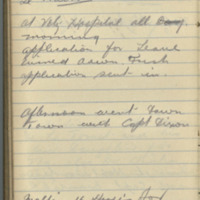 at Vet. Hospital all day,
morning
application for Leave
turned down. Fresh
application sent in.
Afternoon went down
town with Capt Dixon